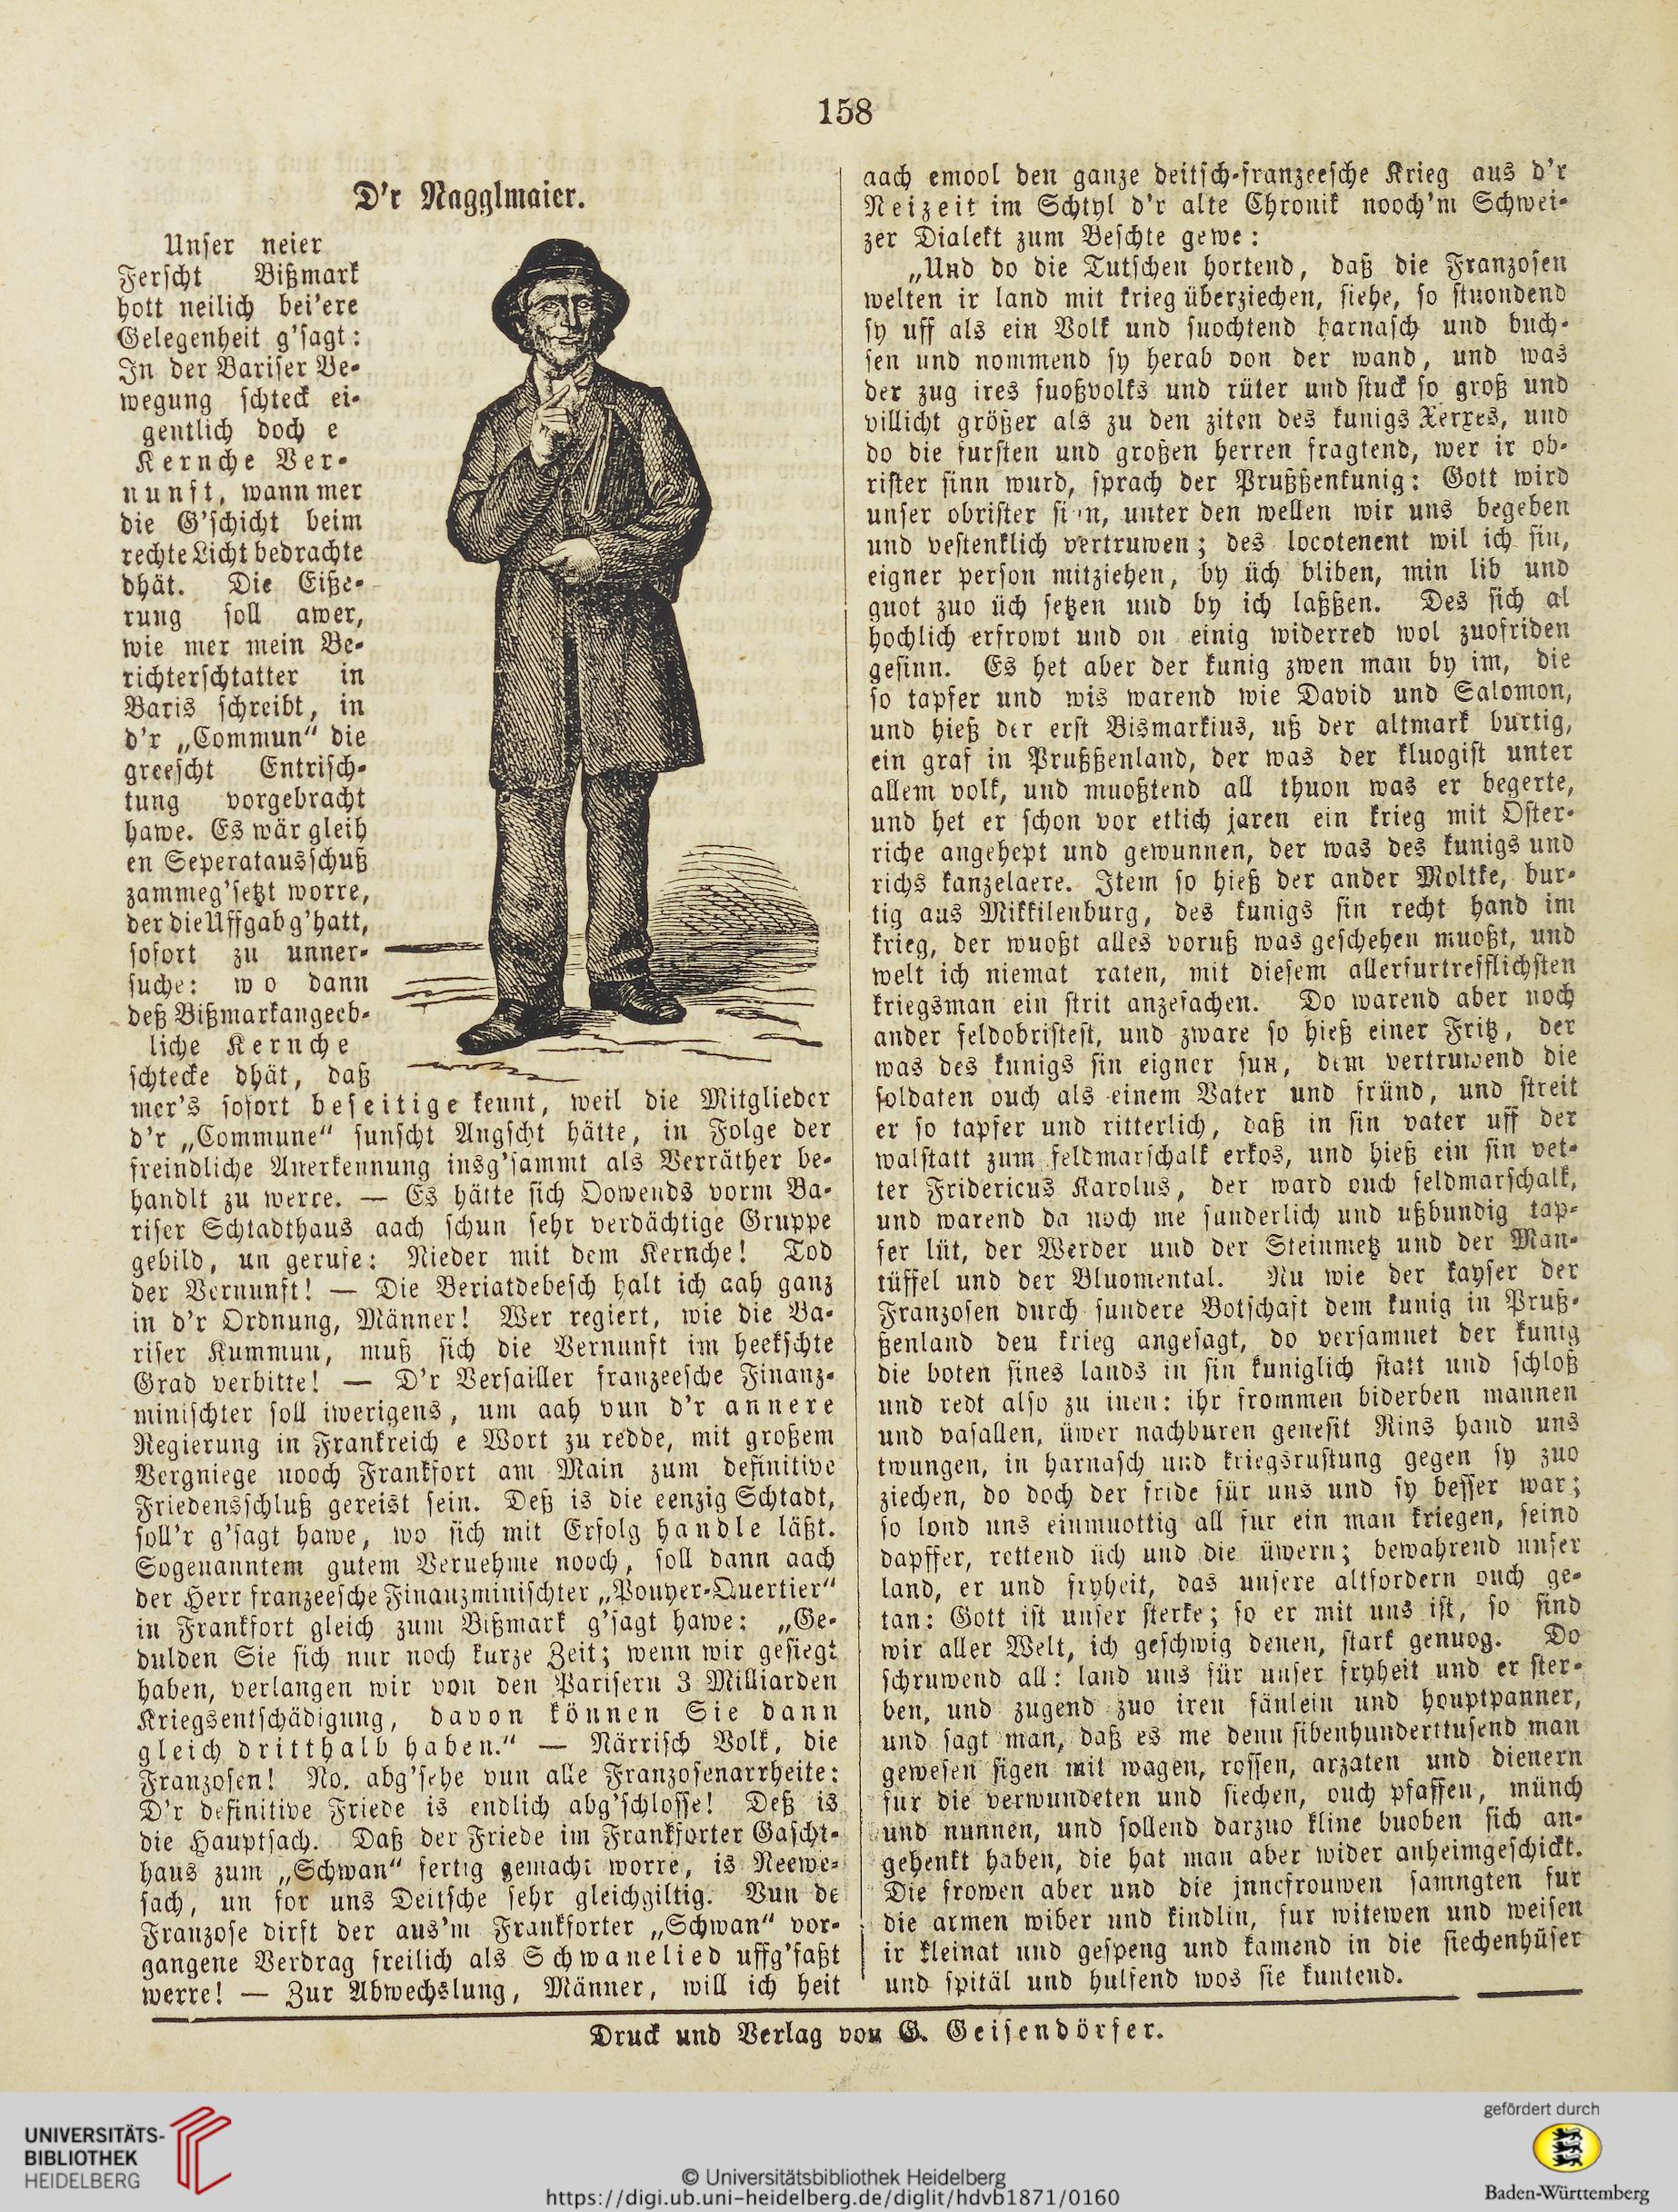 158
D'r Nagglmaier.
Unser neier
Ferscht Bißmark
hott neilich bei'ere
Gelegenheit g'sagt:
In der Bariser Be-
wegung schteck ei-
gentlich doch e
Kernche Ver-
nunft, wann mer
die G'schicht beim
rechte Licht bedrachte
dhät. Die Eiße-
rung soll awer,
wie mer mein Be-
richterschtatter in
Baris schreibt, in
d'r „Commun" die
greescht Entrisch-
tung vorgebracht
hawe. Es wär gleih
en Seperatausschuß
zammeg'setzt worre,
der die Uffgab g'hatt,
sofort zu unner-
suche: wo dann
deß Bißmarkangeeb-
liche Kernche
schtecke dhät, daß
mer's sofort beseitige kennt, weil die Mitglieder
d'r „Commune" sunscht Angscht hätte, in Folge der
freindliche Anerkennung insg'sammt als Verräther be-
handlt zu werre. — Es hätte sich Oowends vorm Ba-
riser Schtadthaus aach schun sehr verdächtige Gruppe
gebild, un gerufe: Nieder mit dem Kernche! Tod
der Vernunft! — Die Beriatdebesch halt ich aah ganz
in d'r Ordnung, Männer! Wer regiert, wie die Ba-
riser Kummun, muß sich die Vernunft im heekschte
Grad verbitte! — D'r Versailler franzeesche Finanz-
minischter soll iwerigens, um aah vun d'r annere
Regierung in Frankreich e Wort zu redde, mit großem
Vergniege nooch Frankfort am Main zum definitive
Friedensschluß gereist sein. Deß is die eenzig Schtadt,
soll'r g'sagt hawe, wo sich mit Erfolg handle läßt.
Sogenanntem gutem Vernehme nooch, soll dann aach
der Herr franzeesche Finanzminischter „Pouyer-Quertier"
in Frankfort gleich zum Bißmark g'sagt hawe: „Ge-
dulden Sie sich nur noch kurze Zeit; wenn wir gesiegt
haben, verlangen wir von den Parisern 3 Milliarden
Kriegsentschädigung, davon können Sie dann
gleich dritthalb haben." — Närrisch Volk, die
Franzosen! No, abg'sehe vun alle Franzosenarrheite:
D'r definitive Friede is endlich abg'schlosse! Deß is
die Hauptsach. Daß der Friede im Frankforter Gascht-
haus zum „Schwan" fertig gemacht worre, is Neewe-
sach, un for uns Deitsche sehr gleichgiltig. Vun de
Franzose dirft der aus'm Frankforter „Schwan" vor-
gangene Verdrag freilich als Schwanelied uffg'faßt
werre! — Zur Abwechslung, Männer, will ich heit
aach emool den ganze deitsch-franzeesche Krieg aus d'r
Neizeit im Schtyl d'r alte Chronik nooch'm Schwei-
zer Dialekt zum Beschte gewe:
„Und do die Tutschen hortend, daß die Franzosen
welten ir land mit krieg überziechen, siehe, so stuondend
sy uff als ein Volk und suochtend harnasch und buch-
sen und nommend sy herab von der wand, und was
der zug ires fuoßvolks und rüter und stuck so groß und
villicht größer als zu den ziten des kunigs Xerxes, und
do die fursten und großen herren fragtend, wer ir ob-
rister sinn wurd, sprach der Prußßenkunig: Gott wird
unser obrister sinn, unter den wellen wir uns begeben
und vestenklich vertruwen; des locotenent wil ich sin,
eigner person mitziehen, by üch bliben, min lib und
guot zuo üch setzen und by ich laßßen. Des sich al
hochlich erfrowt und on einig widerred wol zuofriden
gesinn. Es het aber der kunig zwen man by im, die
so tapfer und wis warend wie David und Salomon,
und hieß der erst Bismarkius, uß der altmark burtig,
ein graf in Prußßenland, der was der kluogist unter
allem volk, und muoßtend all thuon was er begerte,
und het er schon vor etlich jaren ein krieg mit Oster-
riche angehept und gewunnen, der was des kunigs und
richs kanzelaere. Item so hieß der ander Moltke, bur-
tig aus Mikkilenburg, des kunigs sin recht hand im
krieg, der wuoßt alles voruß was geschehen muoßt, und
welt ich niemat raten, mit diesem allerfurtrefflichsten
kriegsman ein strit anzefachen. Do warend aber noch
ander feldobristest, und zware so hieß einer Fritz, der
was des kunigs sin eigner sun, dem vertruwend die
soldaten ouch als einem Vater und fründ, und streit
er so tapfer und ritterlich, daß in sin vater uff der
walstatt zum feldmarschalk erkos, und hieß ein sin vet-
ter Fridericus Karolus, der ward ouch feldmarschalk,
und warend da noch me sunderlich und ußbundig tap-
fer lüt, der Werder und der Steinmetz und der Man-
tüffel und der Bluomental. Nu wie der kayser der
Franzosen durch sundere Botschaft dem kunig in Pruß-
ßenland den krieg angesagt, do versamnet der kunig
die boten sines lands in sin kuniglich statt und schloß
und redt also zu inen: ihr frommen biderben mannen
und vasallen, üwer nachburen genesit Rins hand uns
twungen, in harnasch und kriegsrustung gegen sy zuo
ziechen, do doch der fride für uns und sy besser war;
so lond uns einmuottig all fur ein man kriegen, seind
dapffer, rettend üch und die üwern; bewahrend unser
land, er und fryheit, das unsere altfordern ouch ge-
tan: Gott ist unser sterke; so er mit uns ist, so sind
wir aller Welt, ich geschwig denen, stark genuog. Do
schruwend all: land uns für unser fryheit und er ster-
ben, und zugend zuo iren fänlein und houptpanner,
und sagt man, daß es me denn sibenhunderttusend man
gewesen sigen mit wagen, rossen, arzaten und dienern
fur die verwundeten und siechen, ouch pfaffen, münch
und nunnen, und sollend darzuo kline buoben sich an-
gehenkt haben, die hat man aber wider anheimgeschickt.
Die frowen aber und die jnncfrouwen samngten fur
die armen wiber und kindlin, fur witewen und weisen
ir kleinat und gespeng und kamend in die siechenhüser
und spitäl und hulfend wos sie kuntend.
Druck und Verlag von G. Geisendörfer.
UNIVERSITÄTS-
BIBLIOTHEK
HEIDELBERG
© Universitätsbibliothek Heidelberg
https://digi.ub.uni-heidelberg.de/diglit/hdvb1871/0160
gefördert durch
Baden-Württemberg